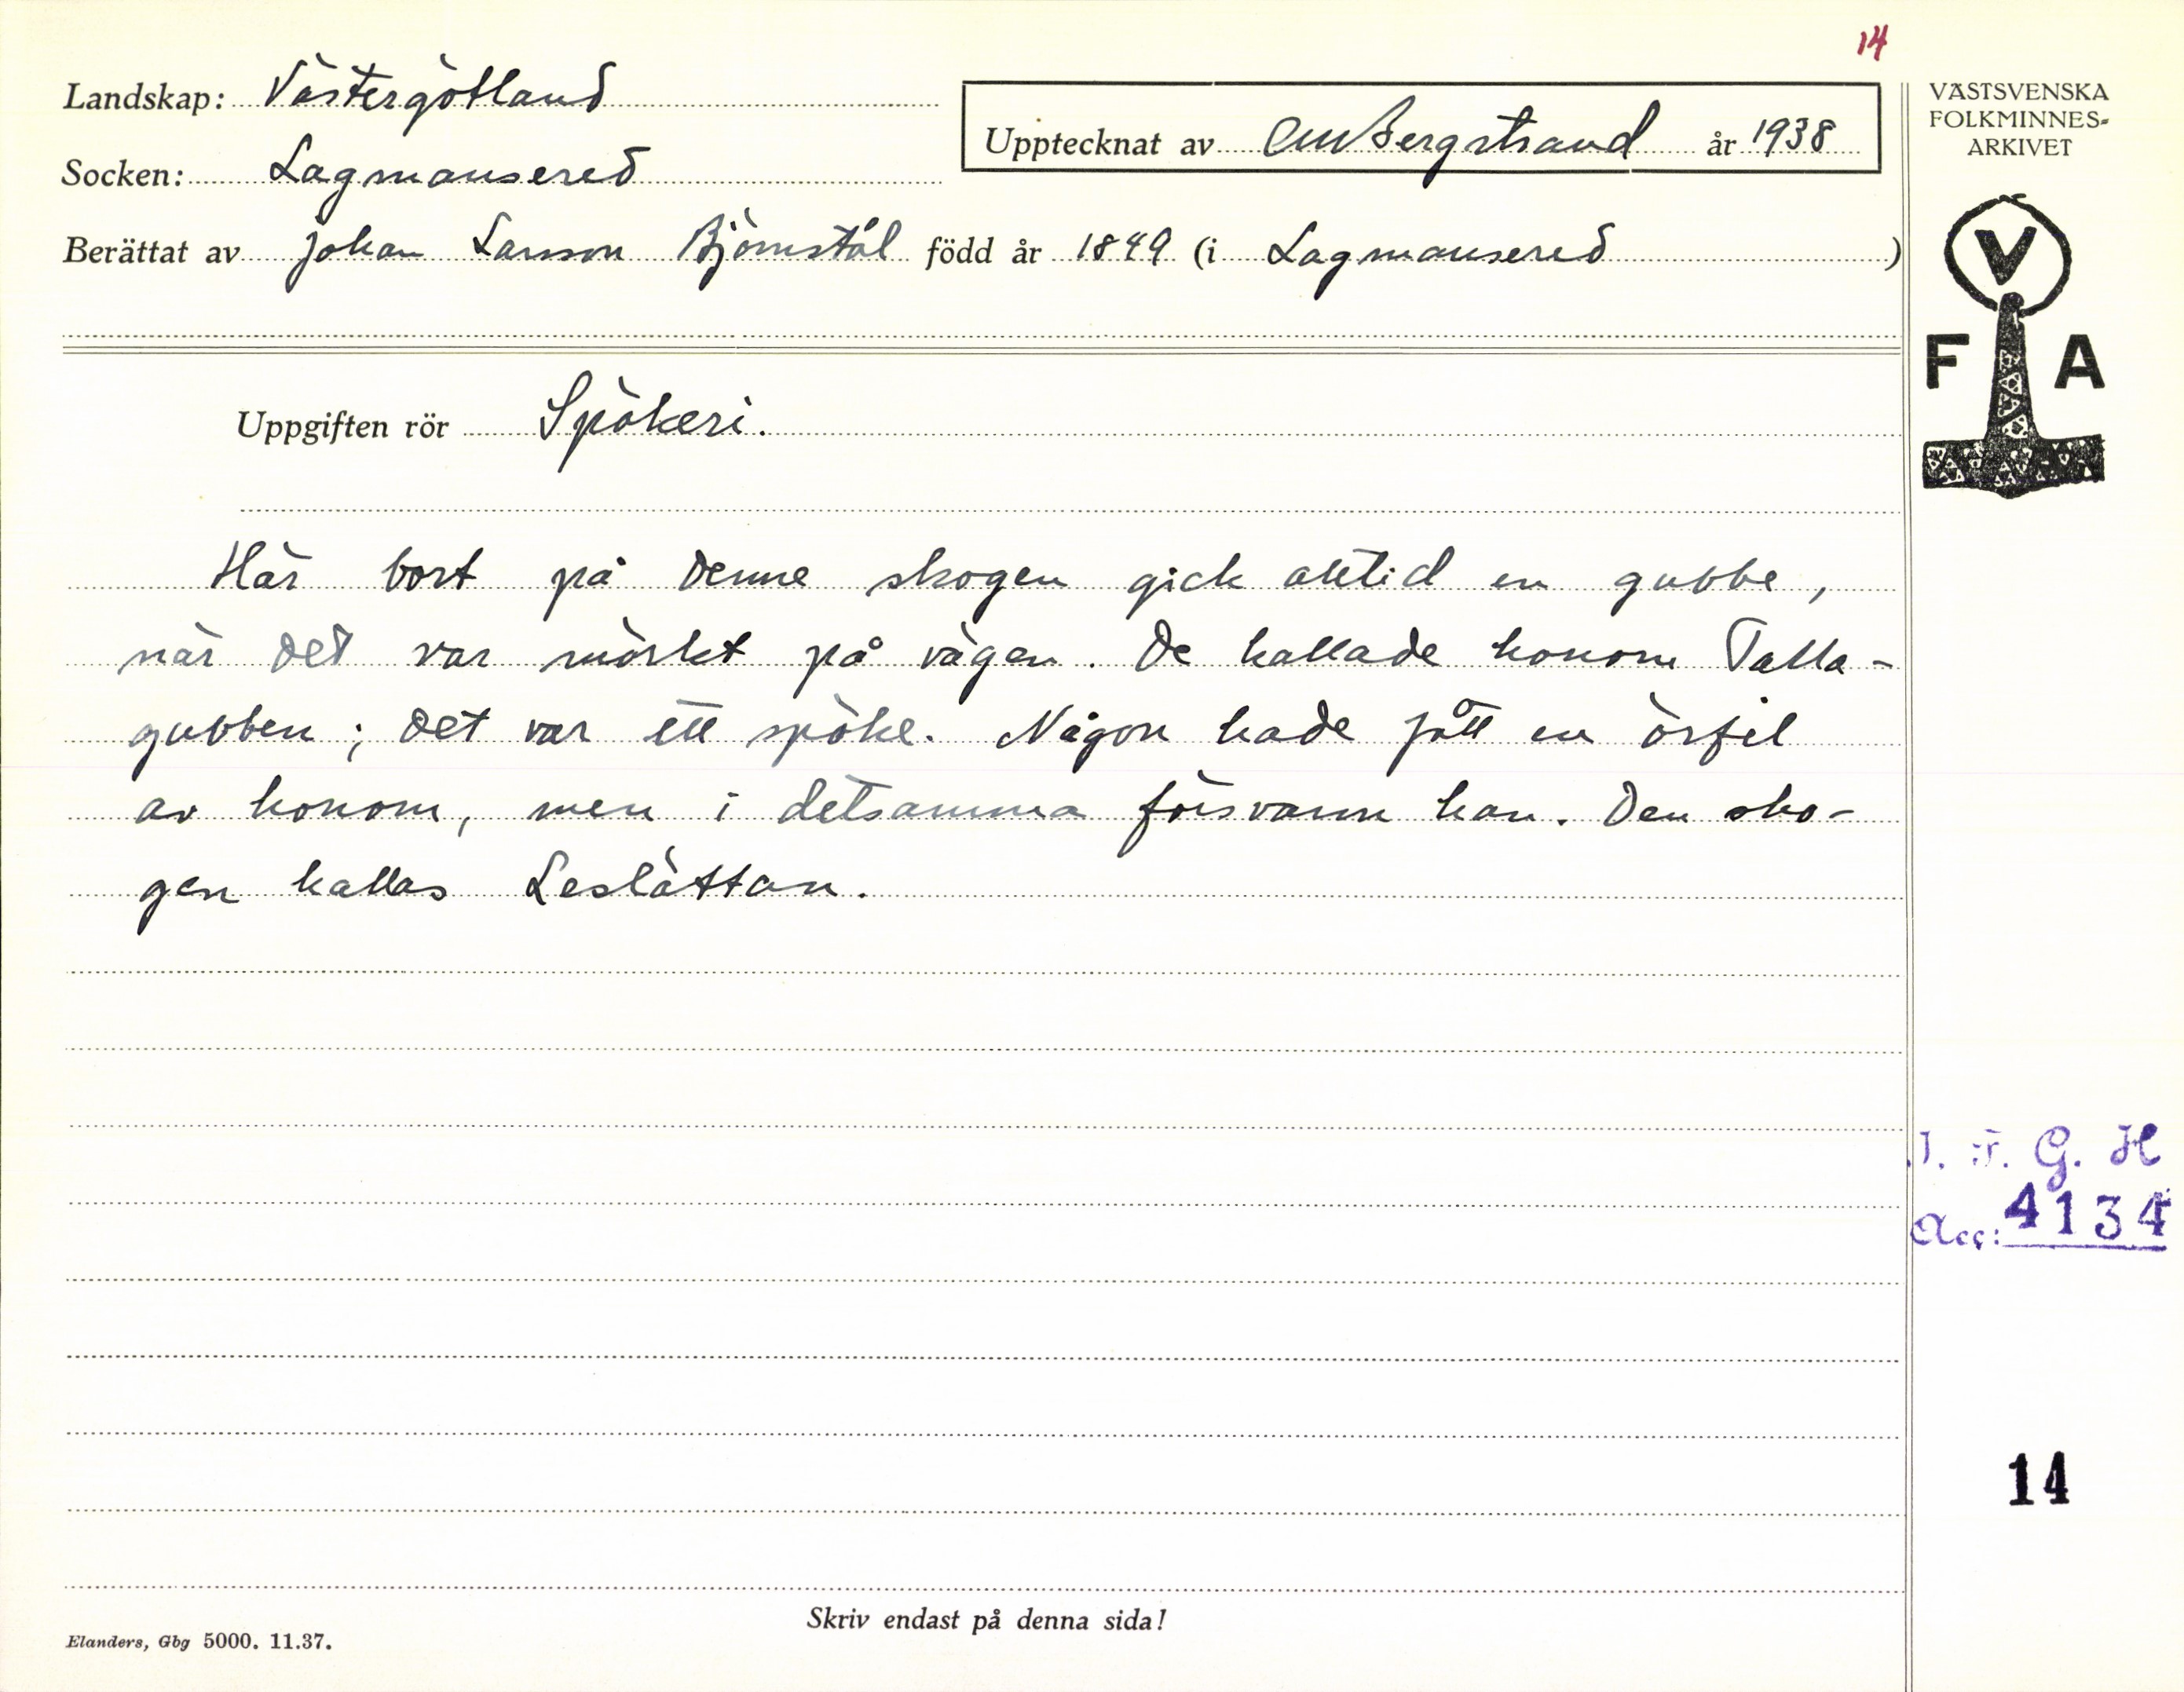 14
Landskap: Västergötland
Socken: Lagmansered
Upptecknat av CM Bergstrand år 1938
Berättat av Johan Larsson Björnstål född år 1849 (i Lagmansered)
Uppgiften rör Spökeri.
Här bort på denne skogen gick alltid en gubbe,
när det var mörkt på vägen. De kallade honom Talla-
gubben; det var ett spöke. Någon hade fått en örfil
av honom, men i detsamma försvann han. Den sko-
gen kallas Leslättan.
Skriv endast på denna sida!
Elanders, Gbg 5000. 11.37.
VÄSTSVENSKA
FOLKMINNES-
ARKIVET
V
F A
I. F. G. H
Acc: 4134
14